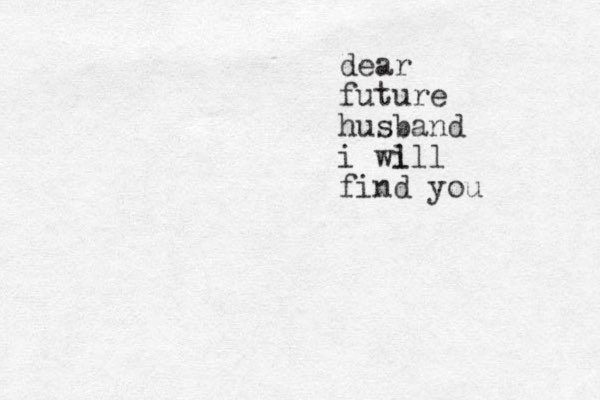 dear
future
husband
i will
find you